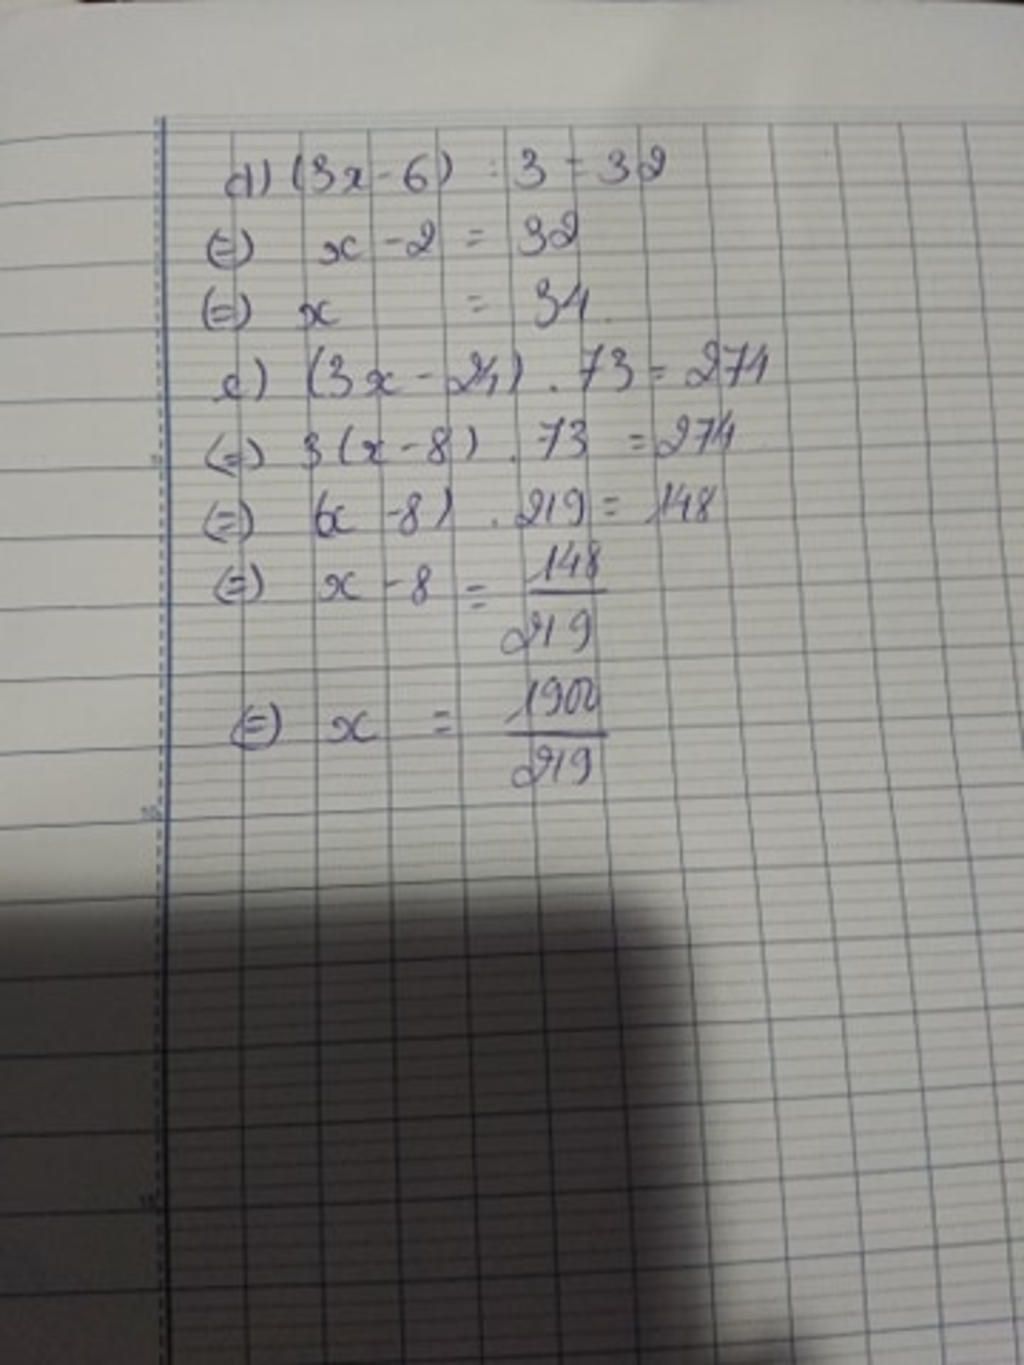 d) (3x - 6) : 3 = 32
(=) x - 2 = 32
(=) x = 34
c) (3x - 24) . 73 = 274
(=) 3(x - 8) . 73 = 274
(=) (x - 8) . 219 = 148
(=) x - 8 = 148/219
(=) x = 1900/219